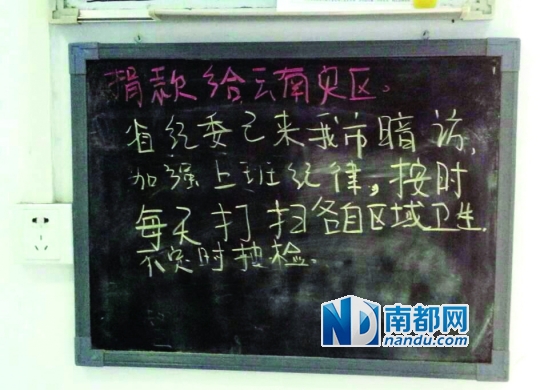 捐款给云南灾区。
省纪委已来我市暗访,
加强上班纪律,按时
每天打扫各自区域卫生.
不定时抽检。
ND 南都网
nandu.com